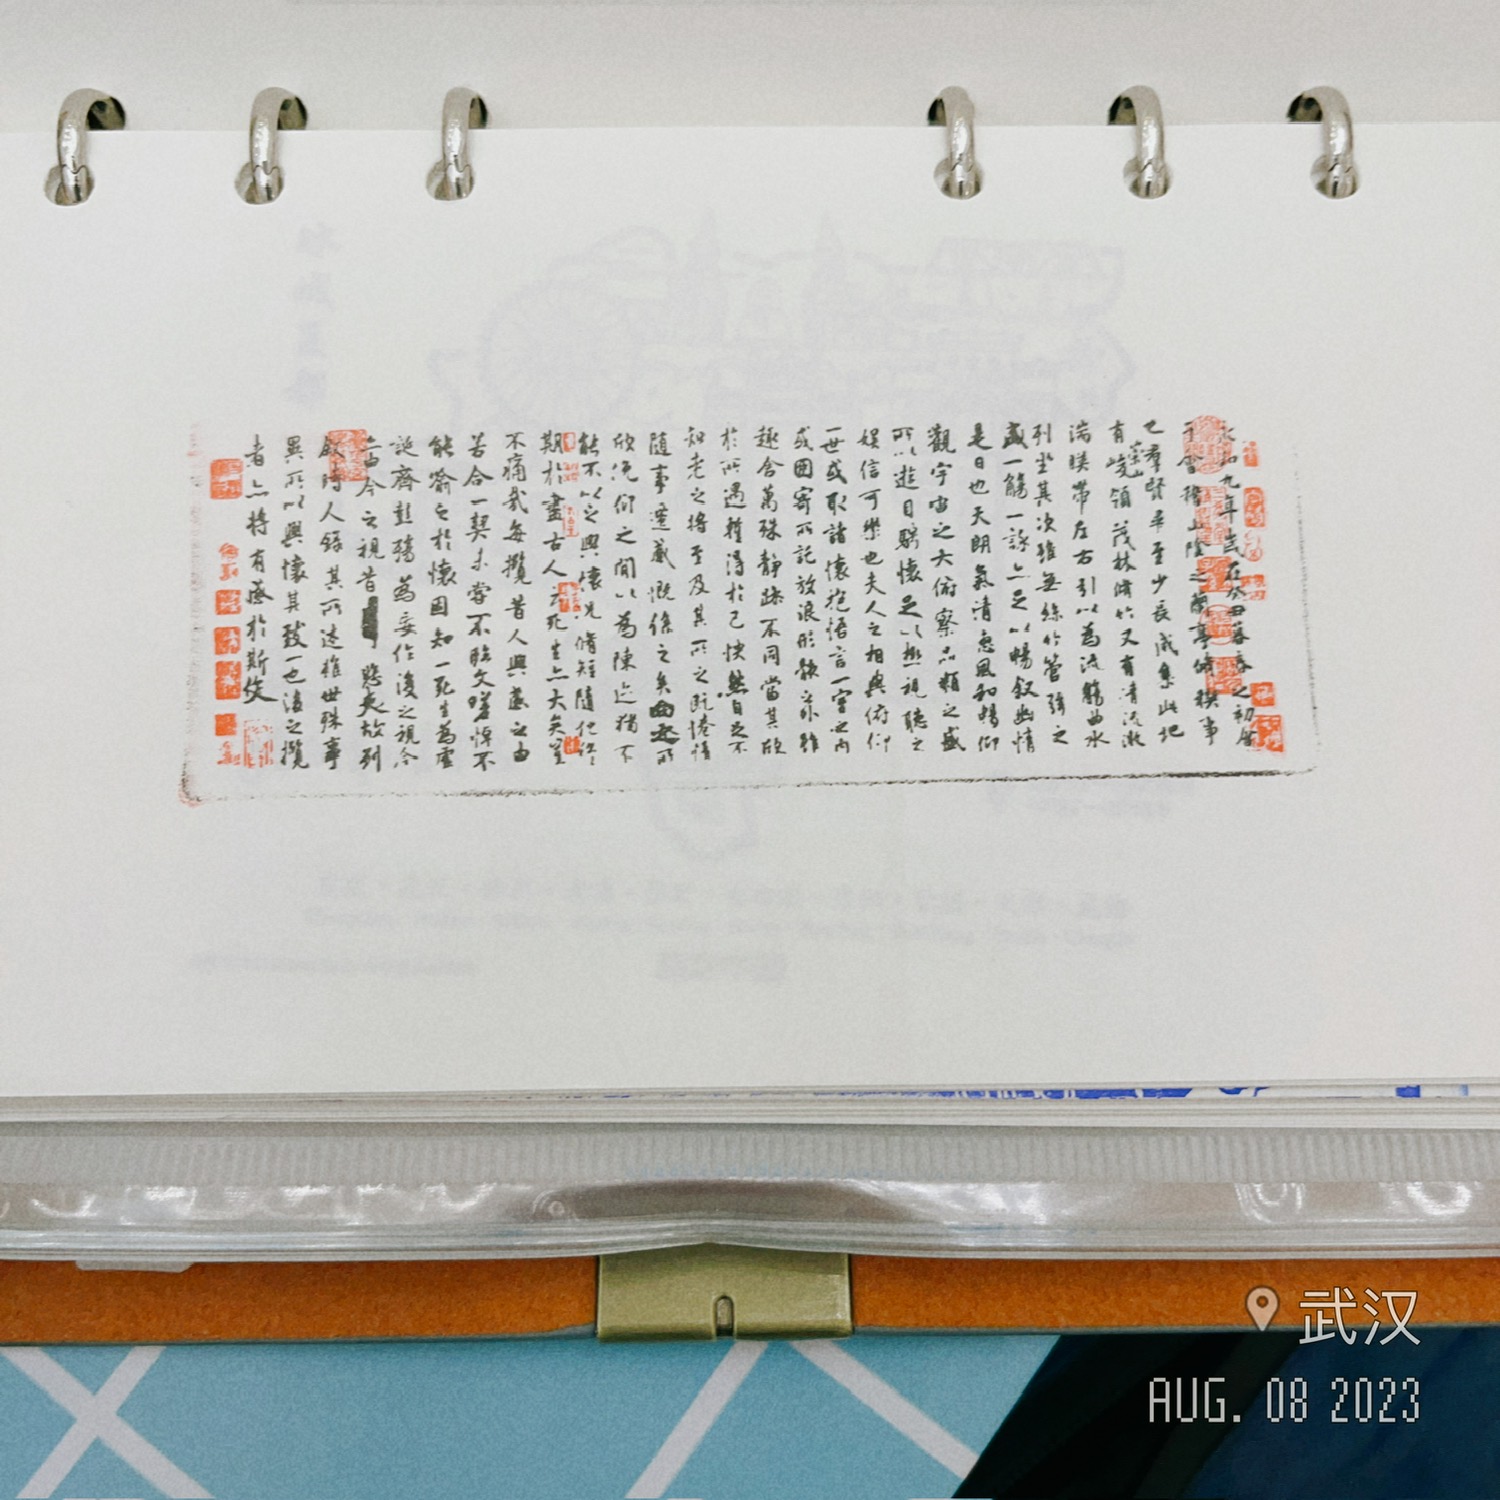 永和九年歲在癸丑暮春之初會
于會稽山陰之蘭亭脩禊事
也羣賢畢至少長咸集此地
有崇山峻領茂林脩竹又有清流激
湍暎帶左右引以為流觴曲水
列坐其次雖無絲竹管弦之
盛一觴一詠亦足以暢敘幽情
是日也天朗氣清惠風和暢仰
觀宇宙之大俯察品類之盛
所以遊目騁懷足以極視聽之
娛信可樂也夫人之相與俯仰
一世或取諸懷抱悟言一室之內
或因寄所託放浪形骸之外雖
趣舍萬殊靜躁不同當其欣
於所遇蹔得於己快然自足不
知老之將至及其所之既惓情
隨事遷感慨係之矣向之所
欣俛仰之閒以為陳迹猶不
能不以之興懷況脩短隨化終
期於盡古人云死生亦大矣豈
不痛哉每攬昔人興感之由
若合一契未嘗不臨文嗟悼不
能喻之於懷固知一死生為虛
誕齊彭殤為妄作後之視今
亦由今之視昔悲夫故列
敘時人錄其所述雖世殊事
異所以興懷其致一也後之攬
者亦將有感於斯文
武汉
AUG. 08 2023